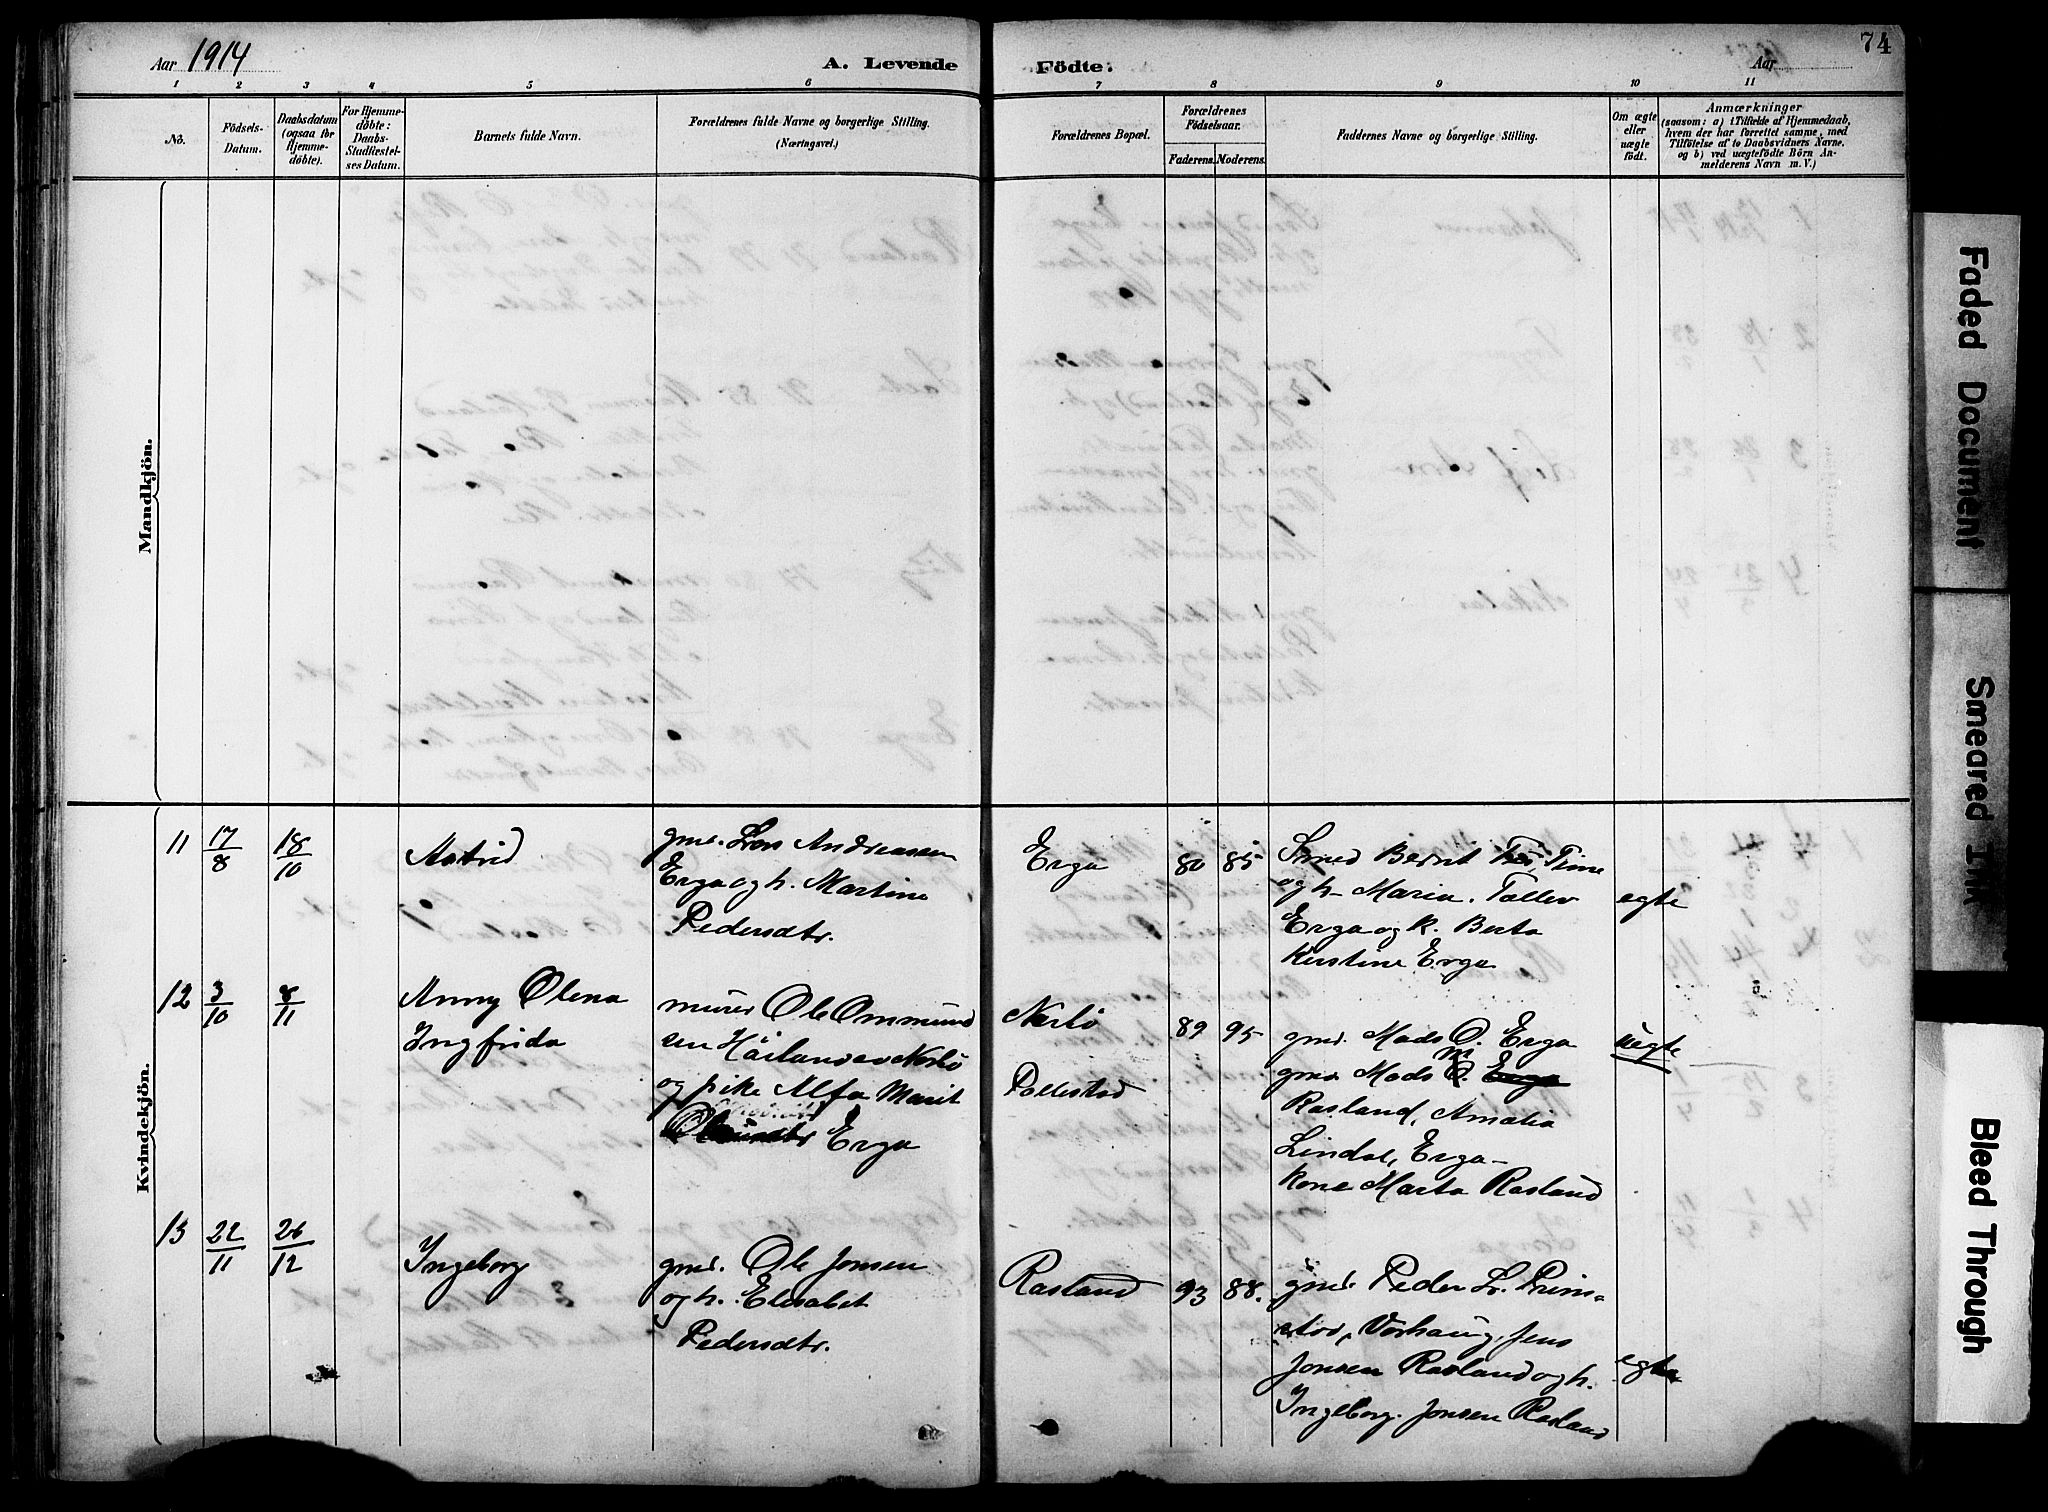 Aar 1914
A. Levende Födte.
74
Aar
1 2 3 4 5 6 7 8 9 10 11
No.
Födsels-Datum.
Daabsdatum (ogsaa for Hjemme-døbte).
For Hjemme-døbte: Daabs-Stadfæstel-ses Datum.
Barnets fulde Navn.
Forældrenes fulde Navne og borgerlige Stilling.
(Næringsvei.)
Forældrenes Bopæl.
Forældrenes Födselsaar.
Faderens. Moderens.
Faddernes Navne og borgerlige Stilling.
Om ægte eller uægte födt.
Anmærkninger
(saasom: a) i Tilfælde af Hjemmedaab, hvem der har forrettet samme, med Tilföielse af to Daabsvidners Navne, og b) ved uægtefödte Börn Anmelderens Navn m. V.)
Mandkjön.
Kvindekjön.
11 17/8 18/10 Astrid
gmd. Lars Andreassen
Erga og h. Martine
Pedersdtr.
Erga 80 85
Smed Bernt Time
og h. Maria. Tollev
Erga og k. Berta
Kirstine Erga
egte
12 3/10 8/11 Anny Olena
Ingfrida
murer Ole Ommund
sen Häiland av Nerlö
og pike Alfa Marit
Erga
Nerlö
Pollestad
89 95
gmd. Mads O. Erga
gmd. Mads M. Erga
Rosland, Amalia
Lindal, Erga
Kone Marta Rosland
uegte
13 22/11 26/12 Ingeborg
gmd. Ole Jonsen
og h. Elisabet
Pedersdtr.
Rosland 93 88.
gmd. Peder L. Prim-
stad, Vorhaug, Jens
Jonsen Rosland og h.
Ingeborg Jonsen Rosland
egte
Faded Document
Smeared Ink
Bleed Through